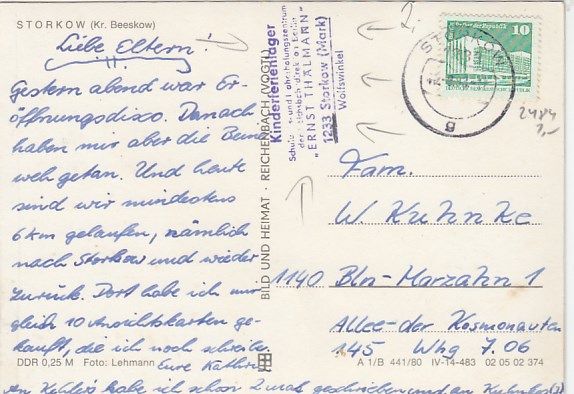 STORKOW (Kr. Beeskow)
Liebe Eltern!
Gestern abend war Er-
öffnungsdisco. Danach
haben mir aber die Beine
weh getan. Und heute
sind wir mindestens
6 km gelaufen, nämlich
nach Storkow und wieder
zurück. Dort habe ich mir
gleich 10 Ansichtskarten ge-
kauft, die ich noch schreibe.
Eure Kathrin
An habe ich schon 2 mal geschrieben und an Kuhnkes(?)
DDR 0,25 M Foto: Lehmann
BILD UND HEIMAT · REICHENBACH (VOGTL)
Kinderferienlager
"ERNST THÄLMANN"
1233 Storkow (Mark)
Wolfswinkel
2.
10
STORKOW
g
2484
1,-
Fam.
W. Kuhnke
1140 Bln-Marzahn 1
Allee der Kosmonauten
145 Whg 7.06
A 1/B 441/80 IV-14-483 02 05 02 374